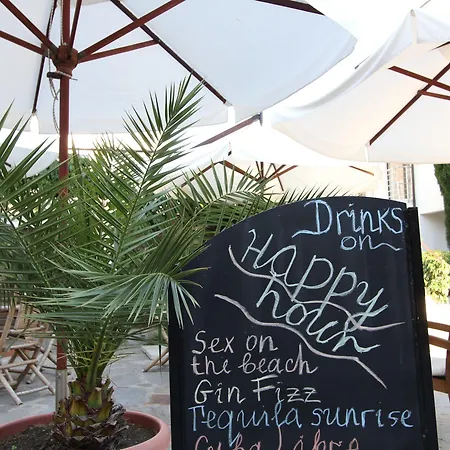 Drinks
on
Happy
hour
Sex on
the beach
Gin Fizz
Tequila sunrise
Cuba Libre